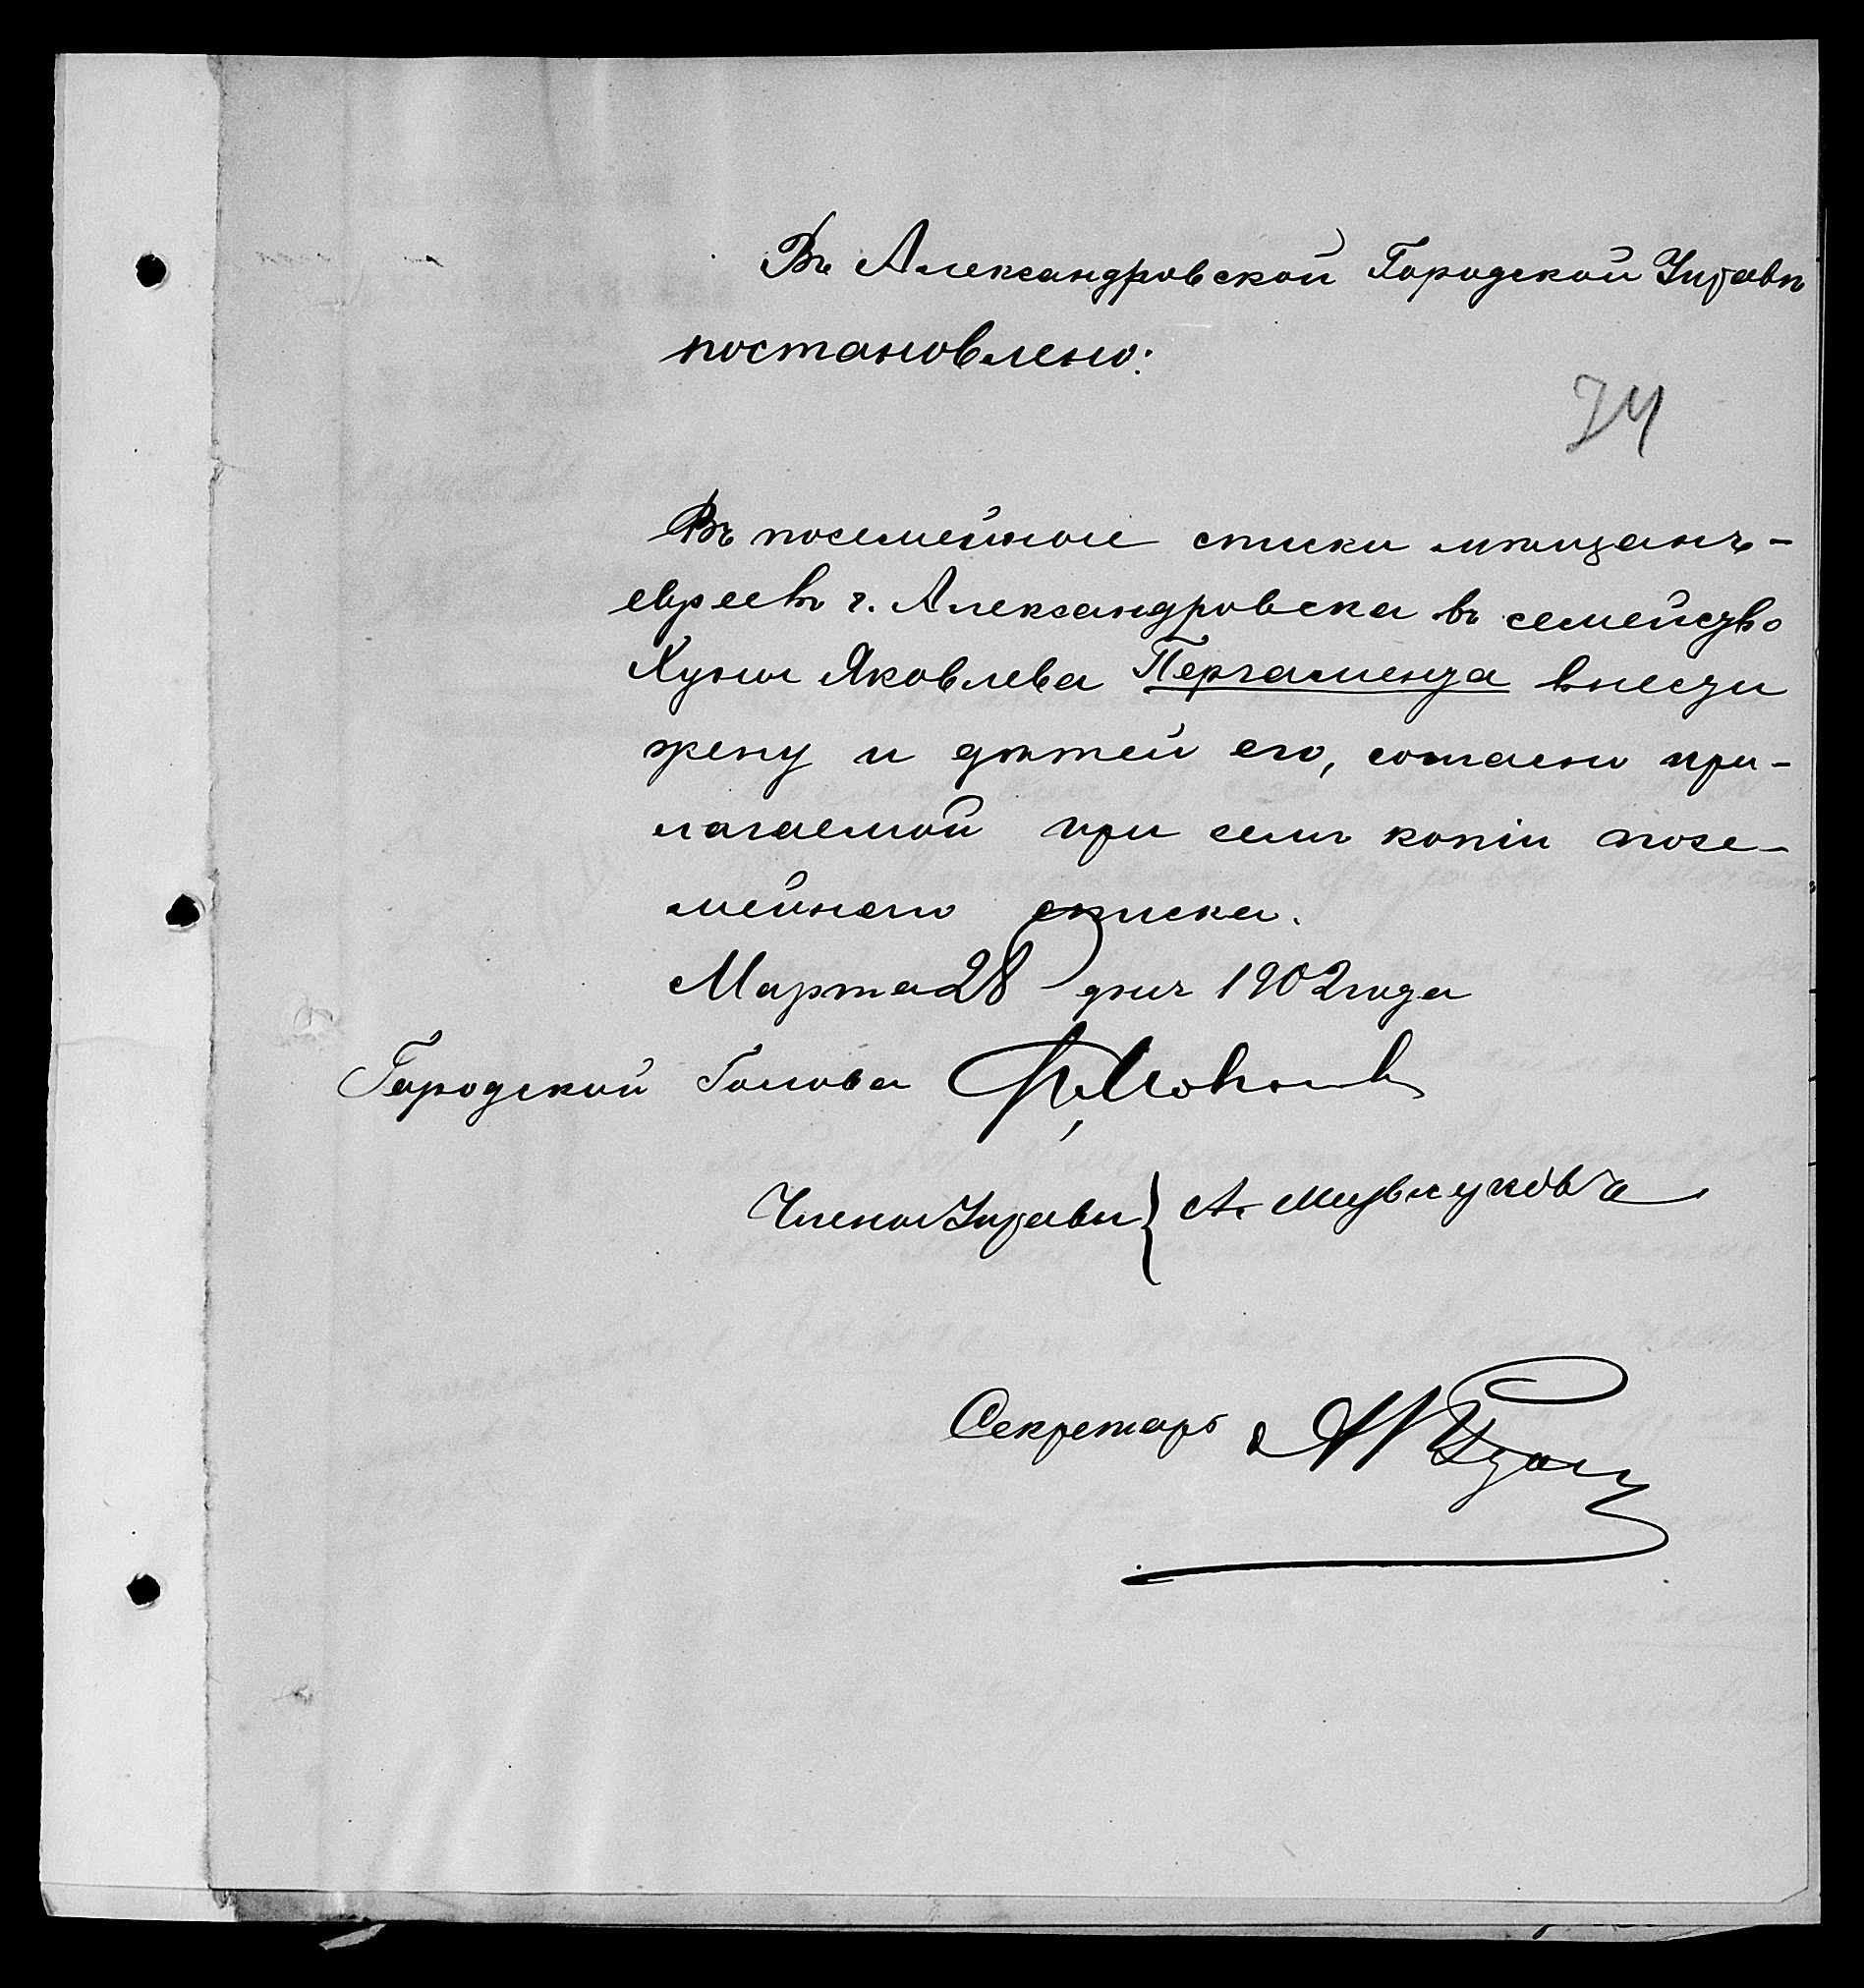 Въ Александровской Городской Управѣ
постановлено:
74
Въ посемейные списки мѣщанъ-
евреевъ г. Александровска въ семейство
Хуны Яковлева Пергамента внести
жену и дѣтей его, согласно при-
лагаемой при семъ копіи посе-
мейнаго списка.
Марта 28 дня 1902 года
Городской Голова
Члены Управы } А.
Секретарь